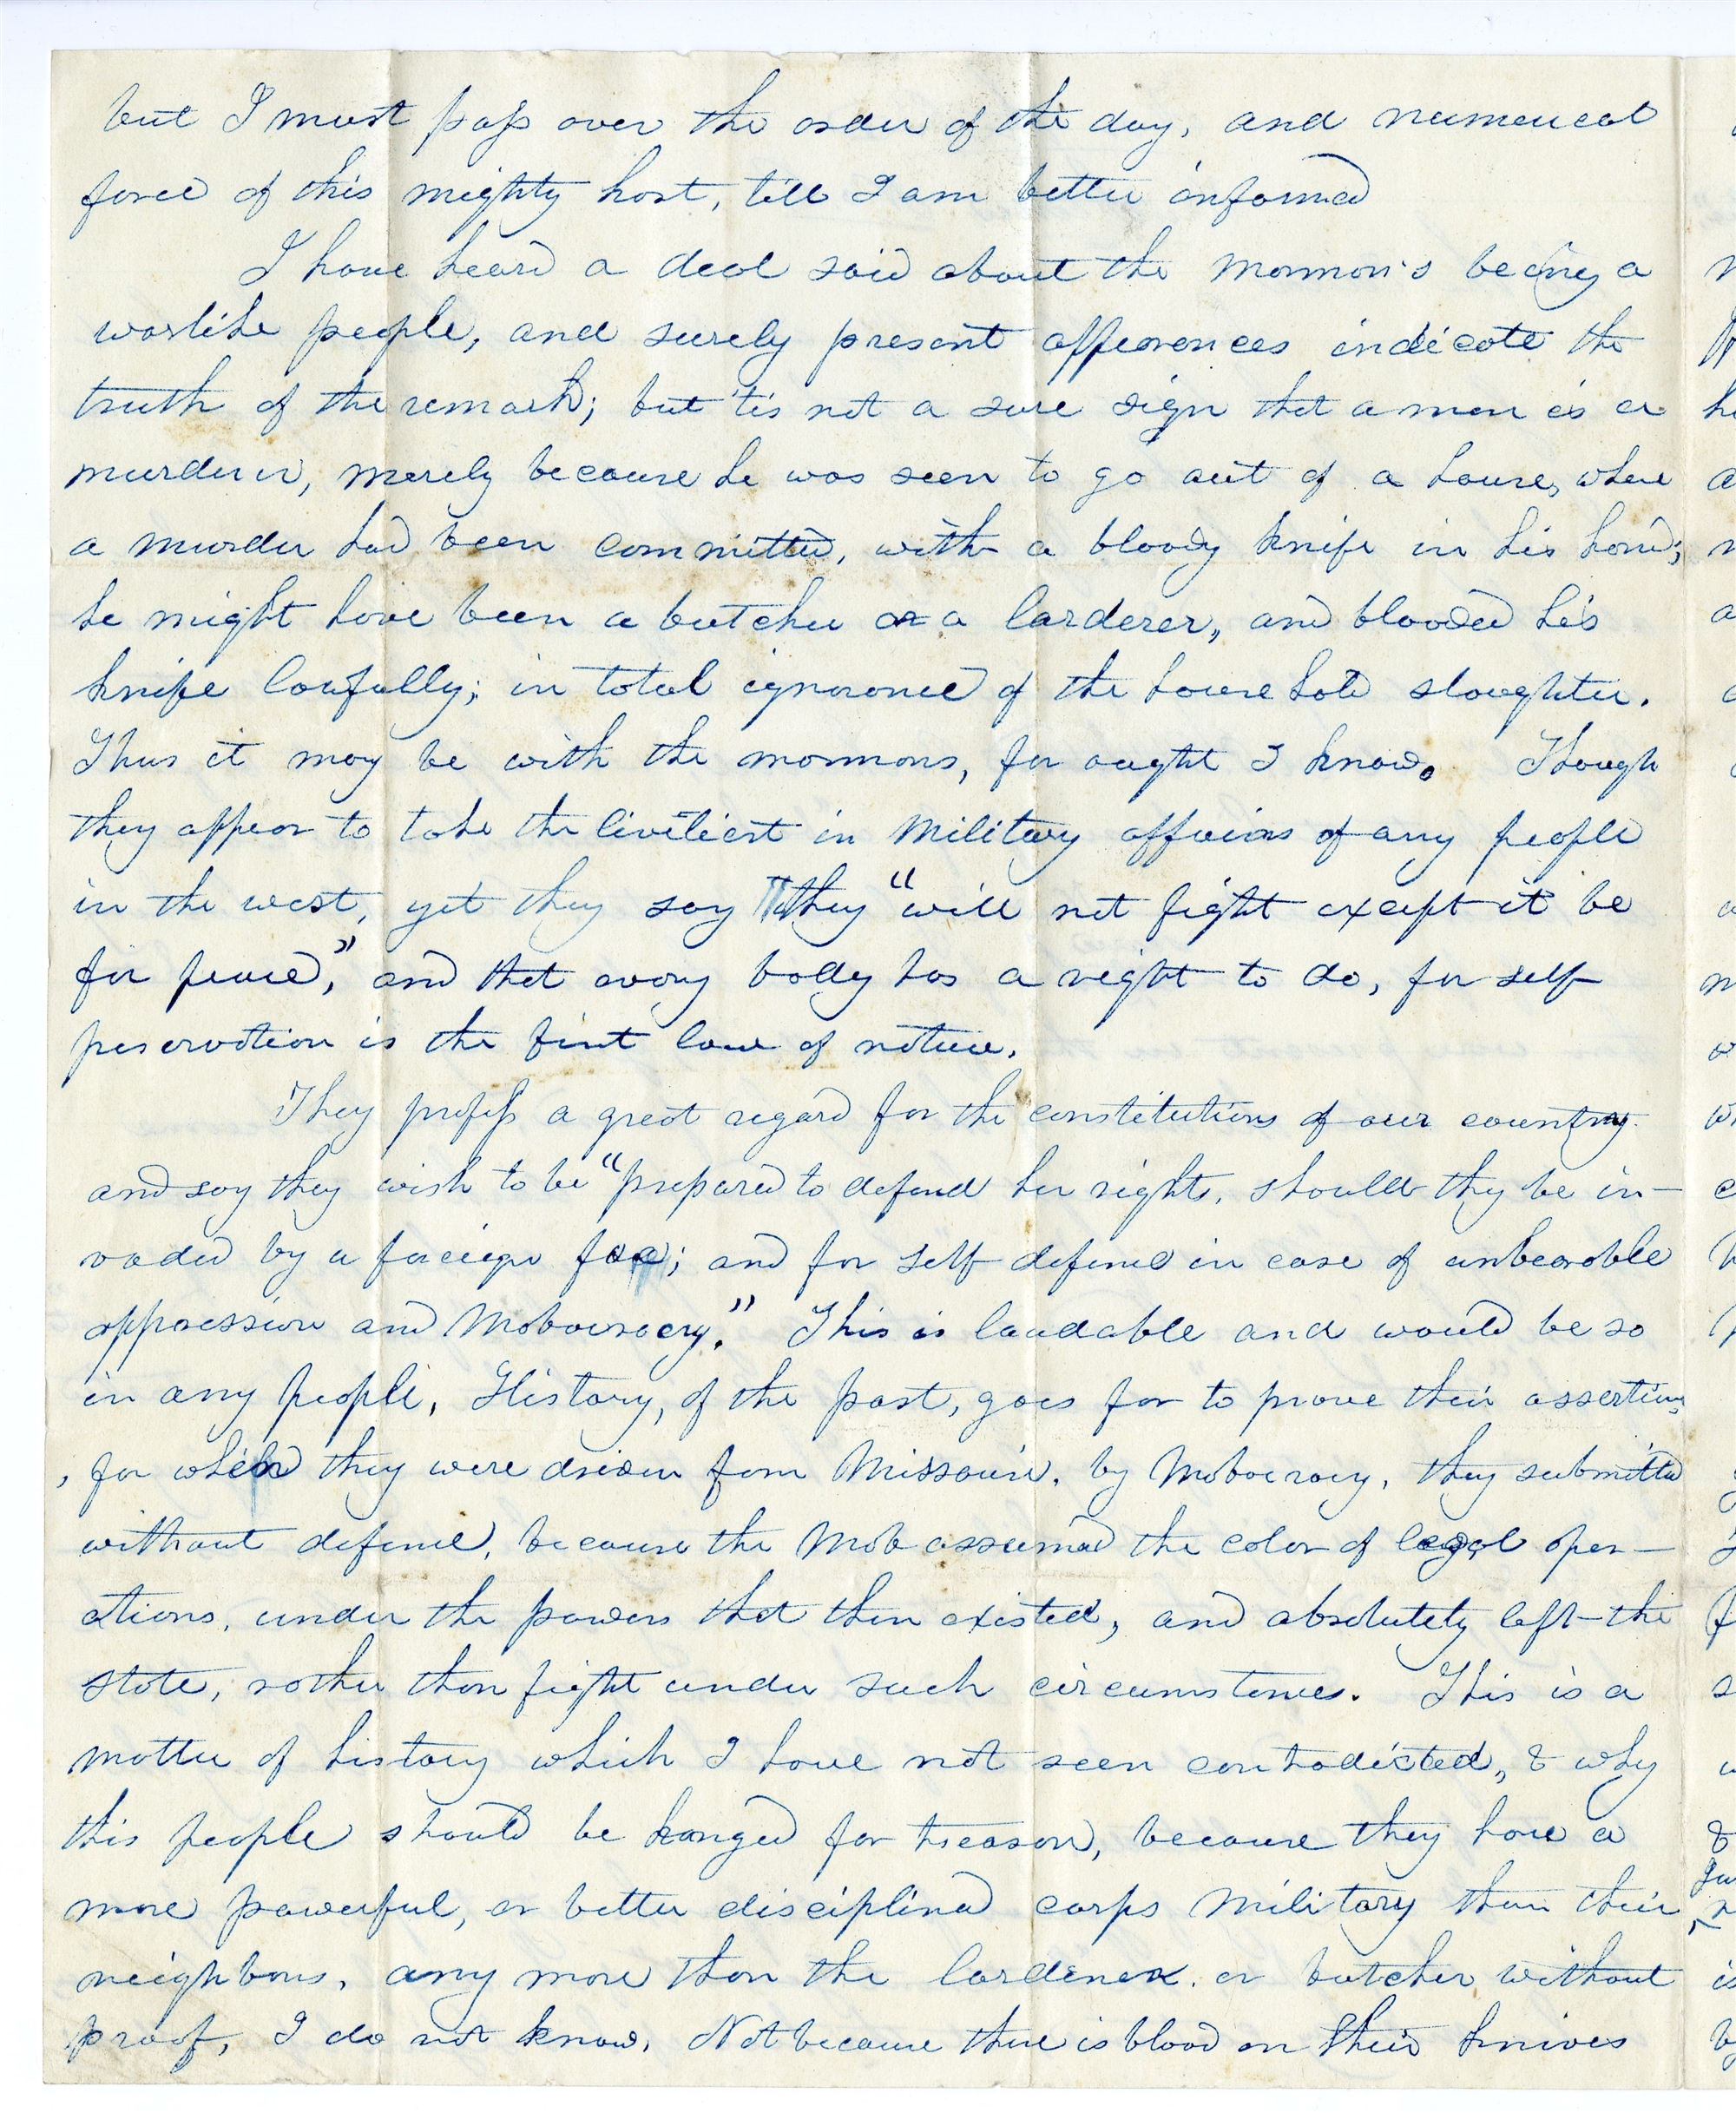 but I must pass over the order of the day, and numerical
force of this mighty host, till I am better informed
I have heard a deal said about the mormon's being a
warlike people, and surely present appearences indicate the
truth of the remark; but 'tis not a sure sign that a man is a
murderer, merely because he was seen to go out of a house, where
a murder had been committed, with a bloody knife in his hand;
he might have been a butcher or a larderer, and blooded his
knife lawfully; in total ignorance of the household slaughter.
Thus it may be with the mormons, for aught I know. Though
they appear to take the liveliest in Military affairs of any people
in the west, yet they say they "will not fight except it be
for peace," and that every body has a right to do, for self
preservation is the first law of nature.
They profess a great regard for the constitutions of our country.
and say they wish to be "prepared to defend her rights, should they be in-
vaded by a foreign foe; and for self defence in case of unbearable
oppression and Mobocracy." This is laudable and would be so
in any people, History, of the past, goes far to prove their assertions
, for when they were driven from Missouri, by Mobocracy, they submitted
without defence, because the Mob assumed the color of legal oper-
ations, under the powers that then existed, and absolutely left the
state, rather than fight under such circumstances. This is a
matter of history which I have not seen contradicted, & why
this people should be hanged for treason, because they have a
more powerful, or better disciplined corps Military than their
neighbors, any more than the larderer, or butcher without
proof, I do not know, Not because there is blood on their knives